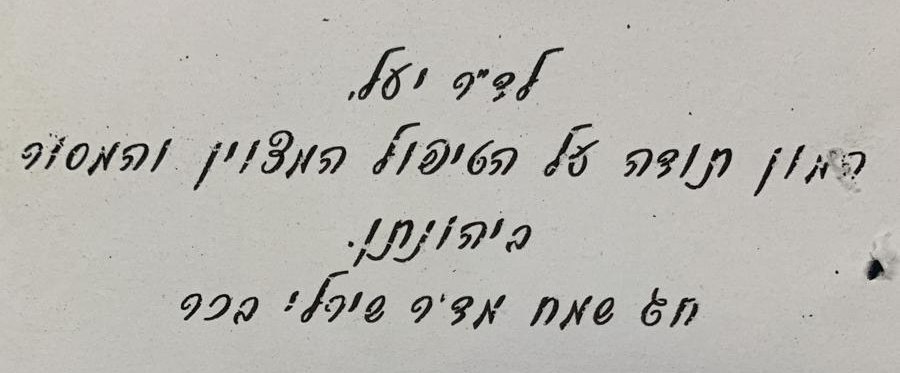 לד"ר יעל,
המון תודה על הטיפול המצוין והמסור
ביהונתן.
חג שמח מד"ר שירלי בכר